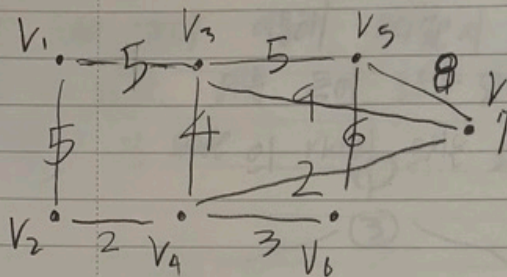 V₁ 5 V₃ 5 V₅
8 V₇
5 4 9 6
2
V₂ 2 V₄ 3 V₆